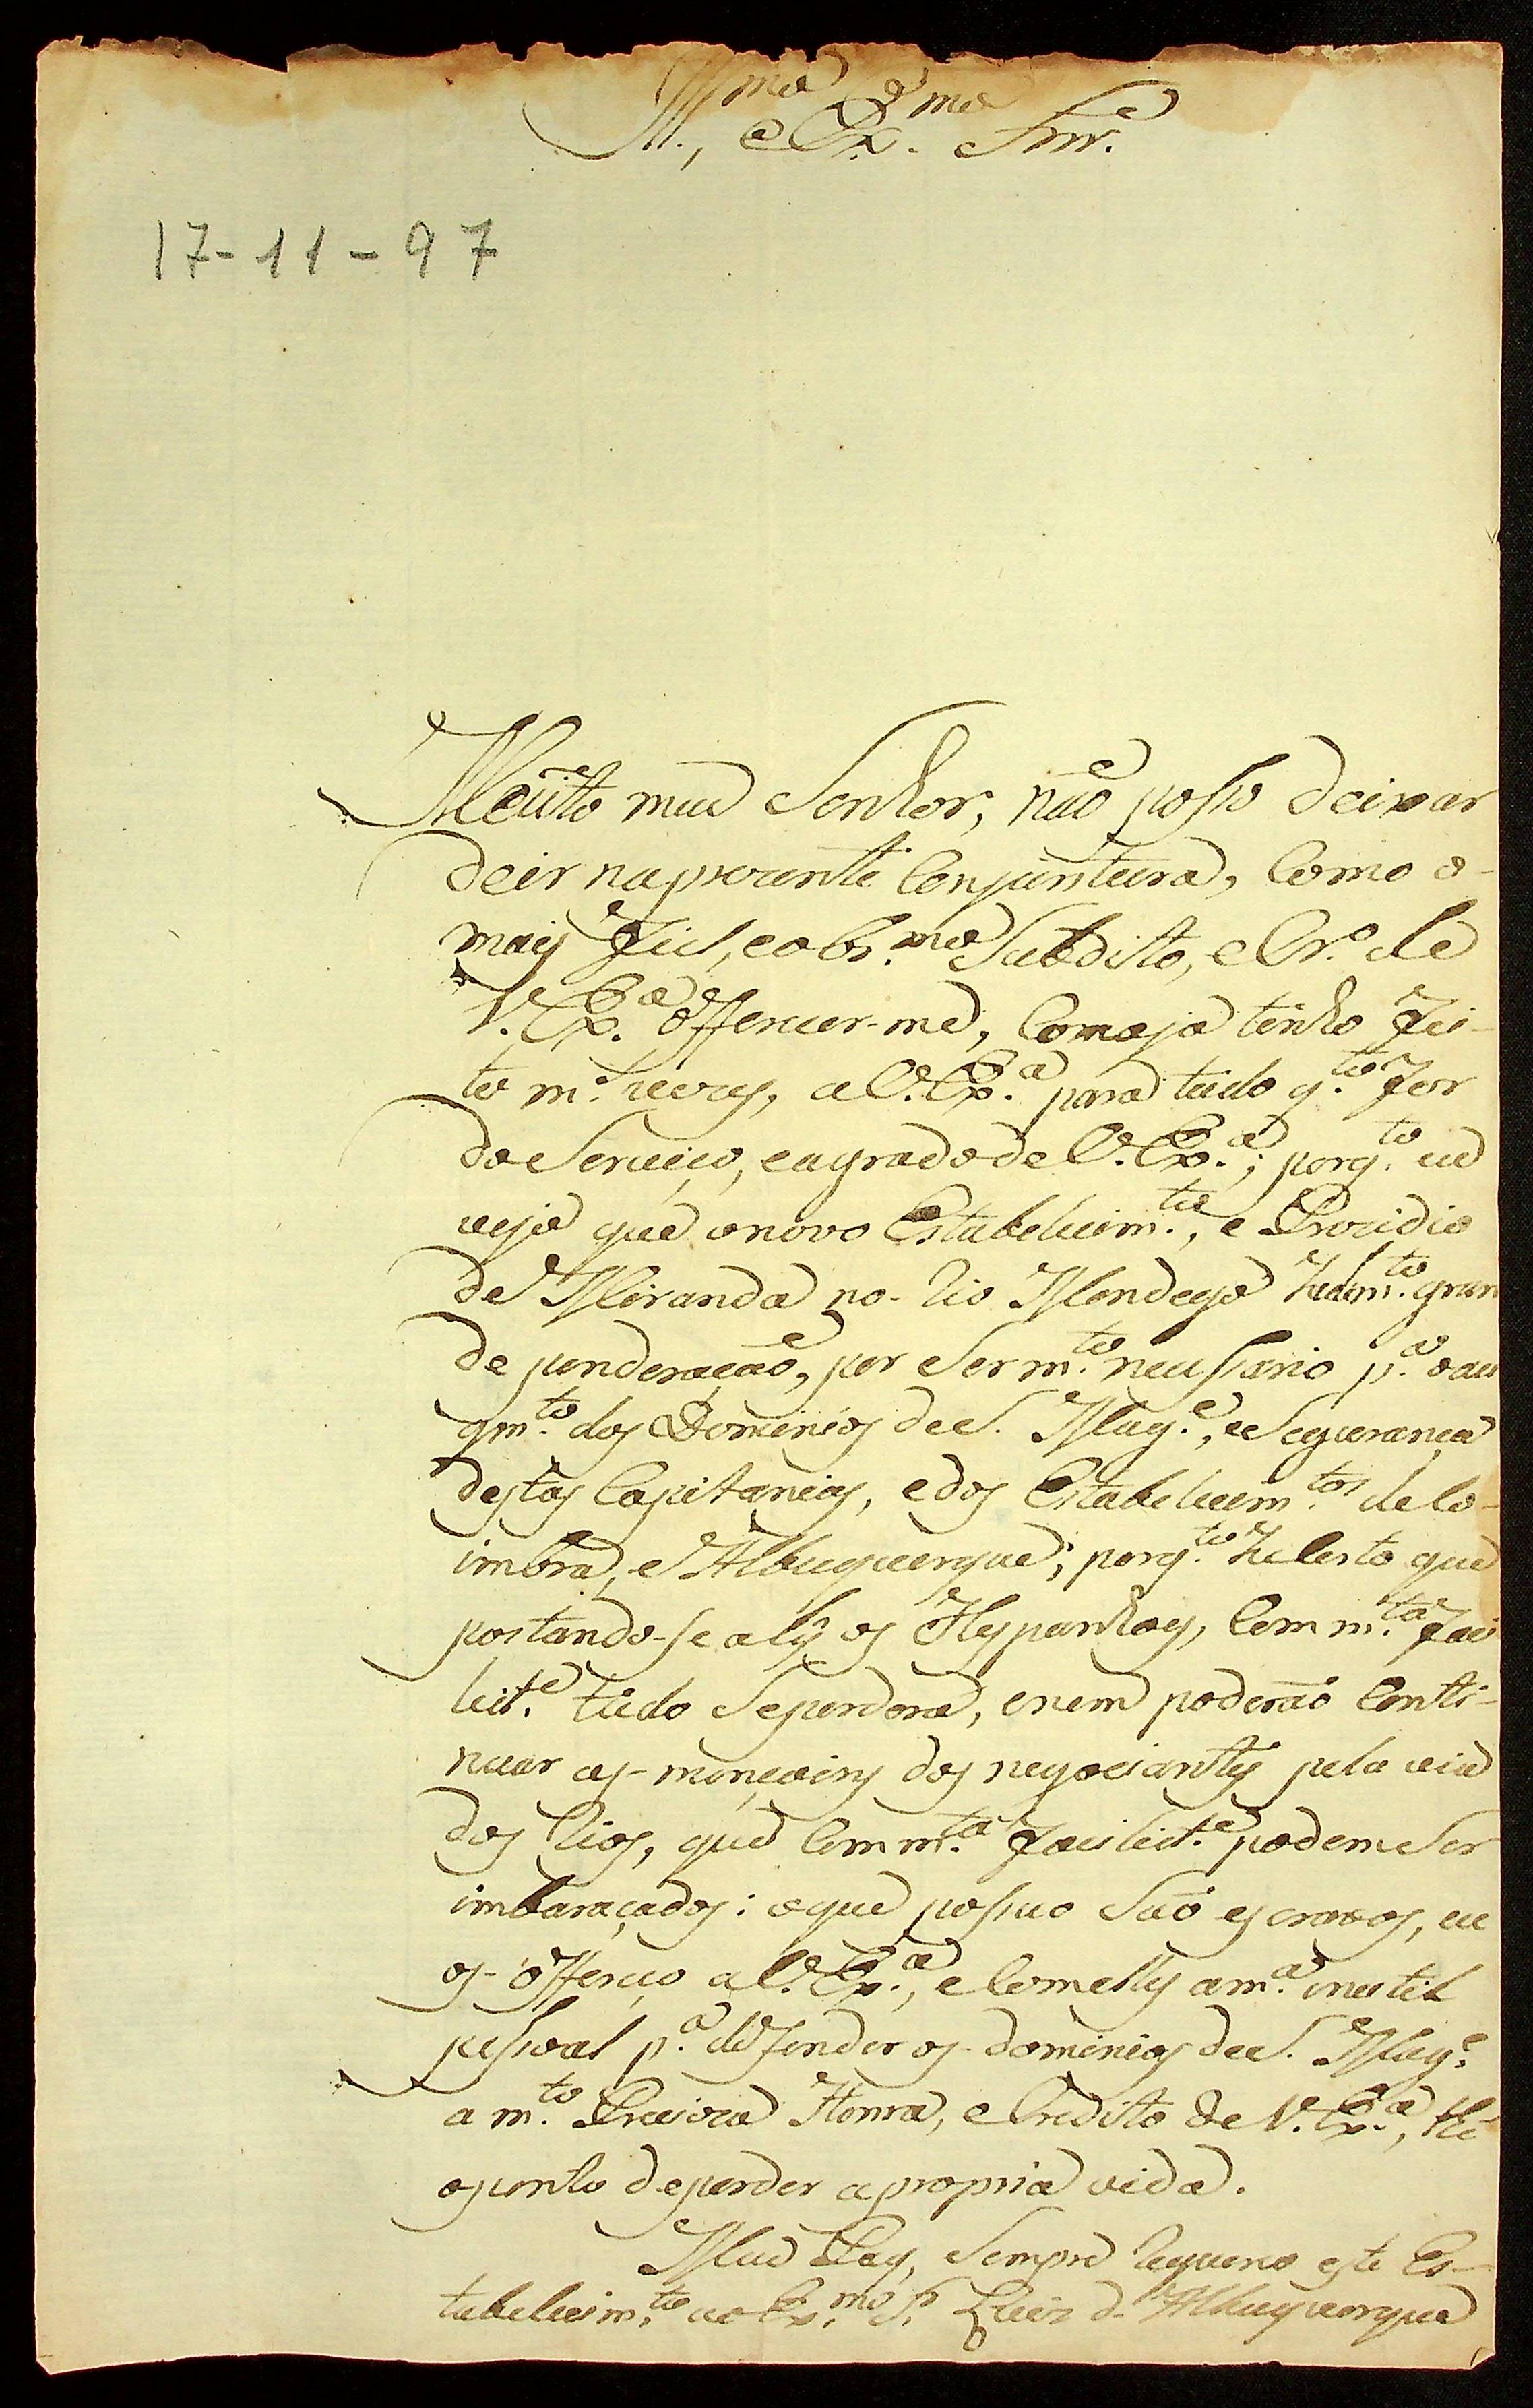 Ill.mo, e Ex.mo Snr.
17-11-97
Muito meu Senhor, não posso deixar
de ir na prezente Conjuntura, como o
mais Fiel, e obr.mo Subdito, e Cr.o de
V. Ex.a Offerecer-me, como ja tenho Fei-
to m.s vezes, a V. Ex.a para tudo q.to For
do Serviço, e agrado de V. Ex.a; porq.to eu
vejo que o novo Estabelecim.to, e Prezidio
de Miranda no Rio Mondego he de m.to gran
de ponderação, por ser m.to necessario p.a o au
gm.to dos Dominios de S. Mag.e, e Segurança
destas Capitanias, e dos Estabelecim.tos de Co-
imbra, e Albuquerque; porq.to he Certo que
postando-se aly os Hespanhoes, Com m.ta Faci
lid.e tudo se perderá, e nem poderão Conti-
nuar as monçoins dos negociantes pela via
dos Rios, que Com m.ta Facilid.e podem Ser
imbaraçados: o que possuo São escravos, eu
os Offereço a V. Ex.a, e Com elles a m.a inutil
pessoal p.a defender os dominios de S. Mag.e
a m.to Precioza Honra, e Credito de V. Ex.a, thé
o ponto de perder a propria vida.
Meu Pay, Sempre Requereo este Es-
tabelecim.to ao Ex.mo S.r Luiz d. Albuquerque